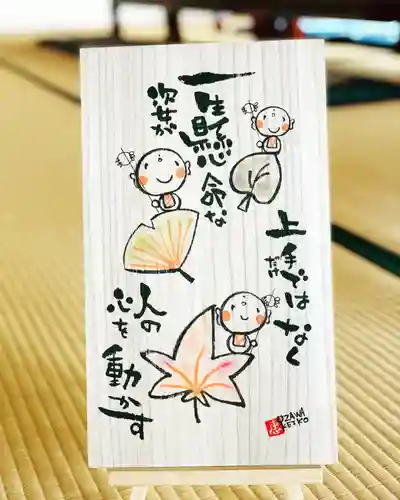 上手だけではなく
一生懸命な
姿が
人の
心を
動かす
OZAWA
KEIKO